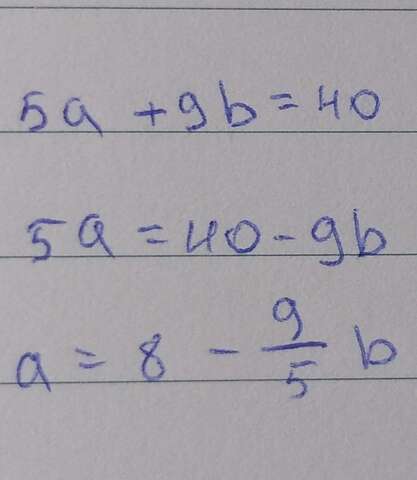 5a + 9b = 40
5a = 40 - 9b
a = 8 - \frac{9}{5} b